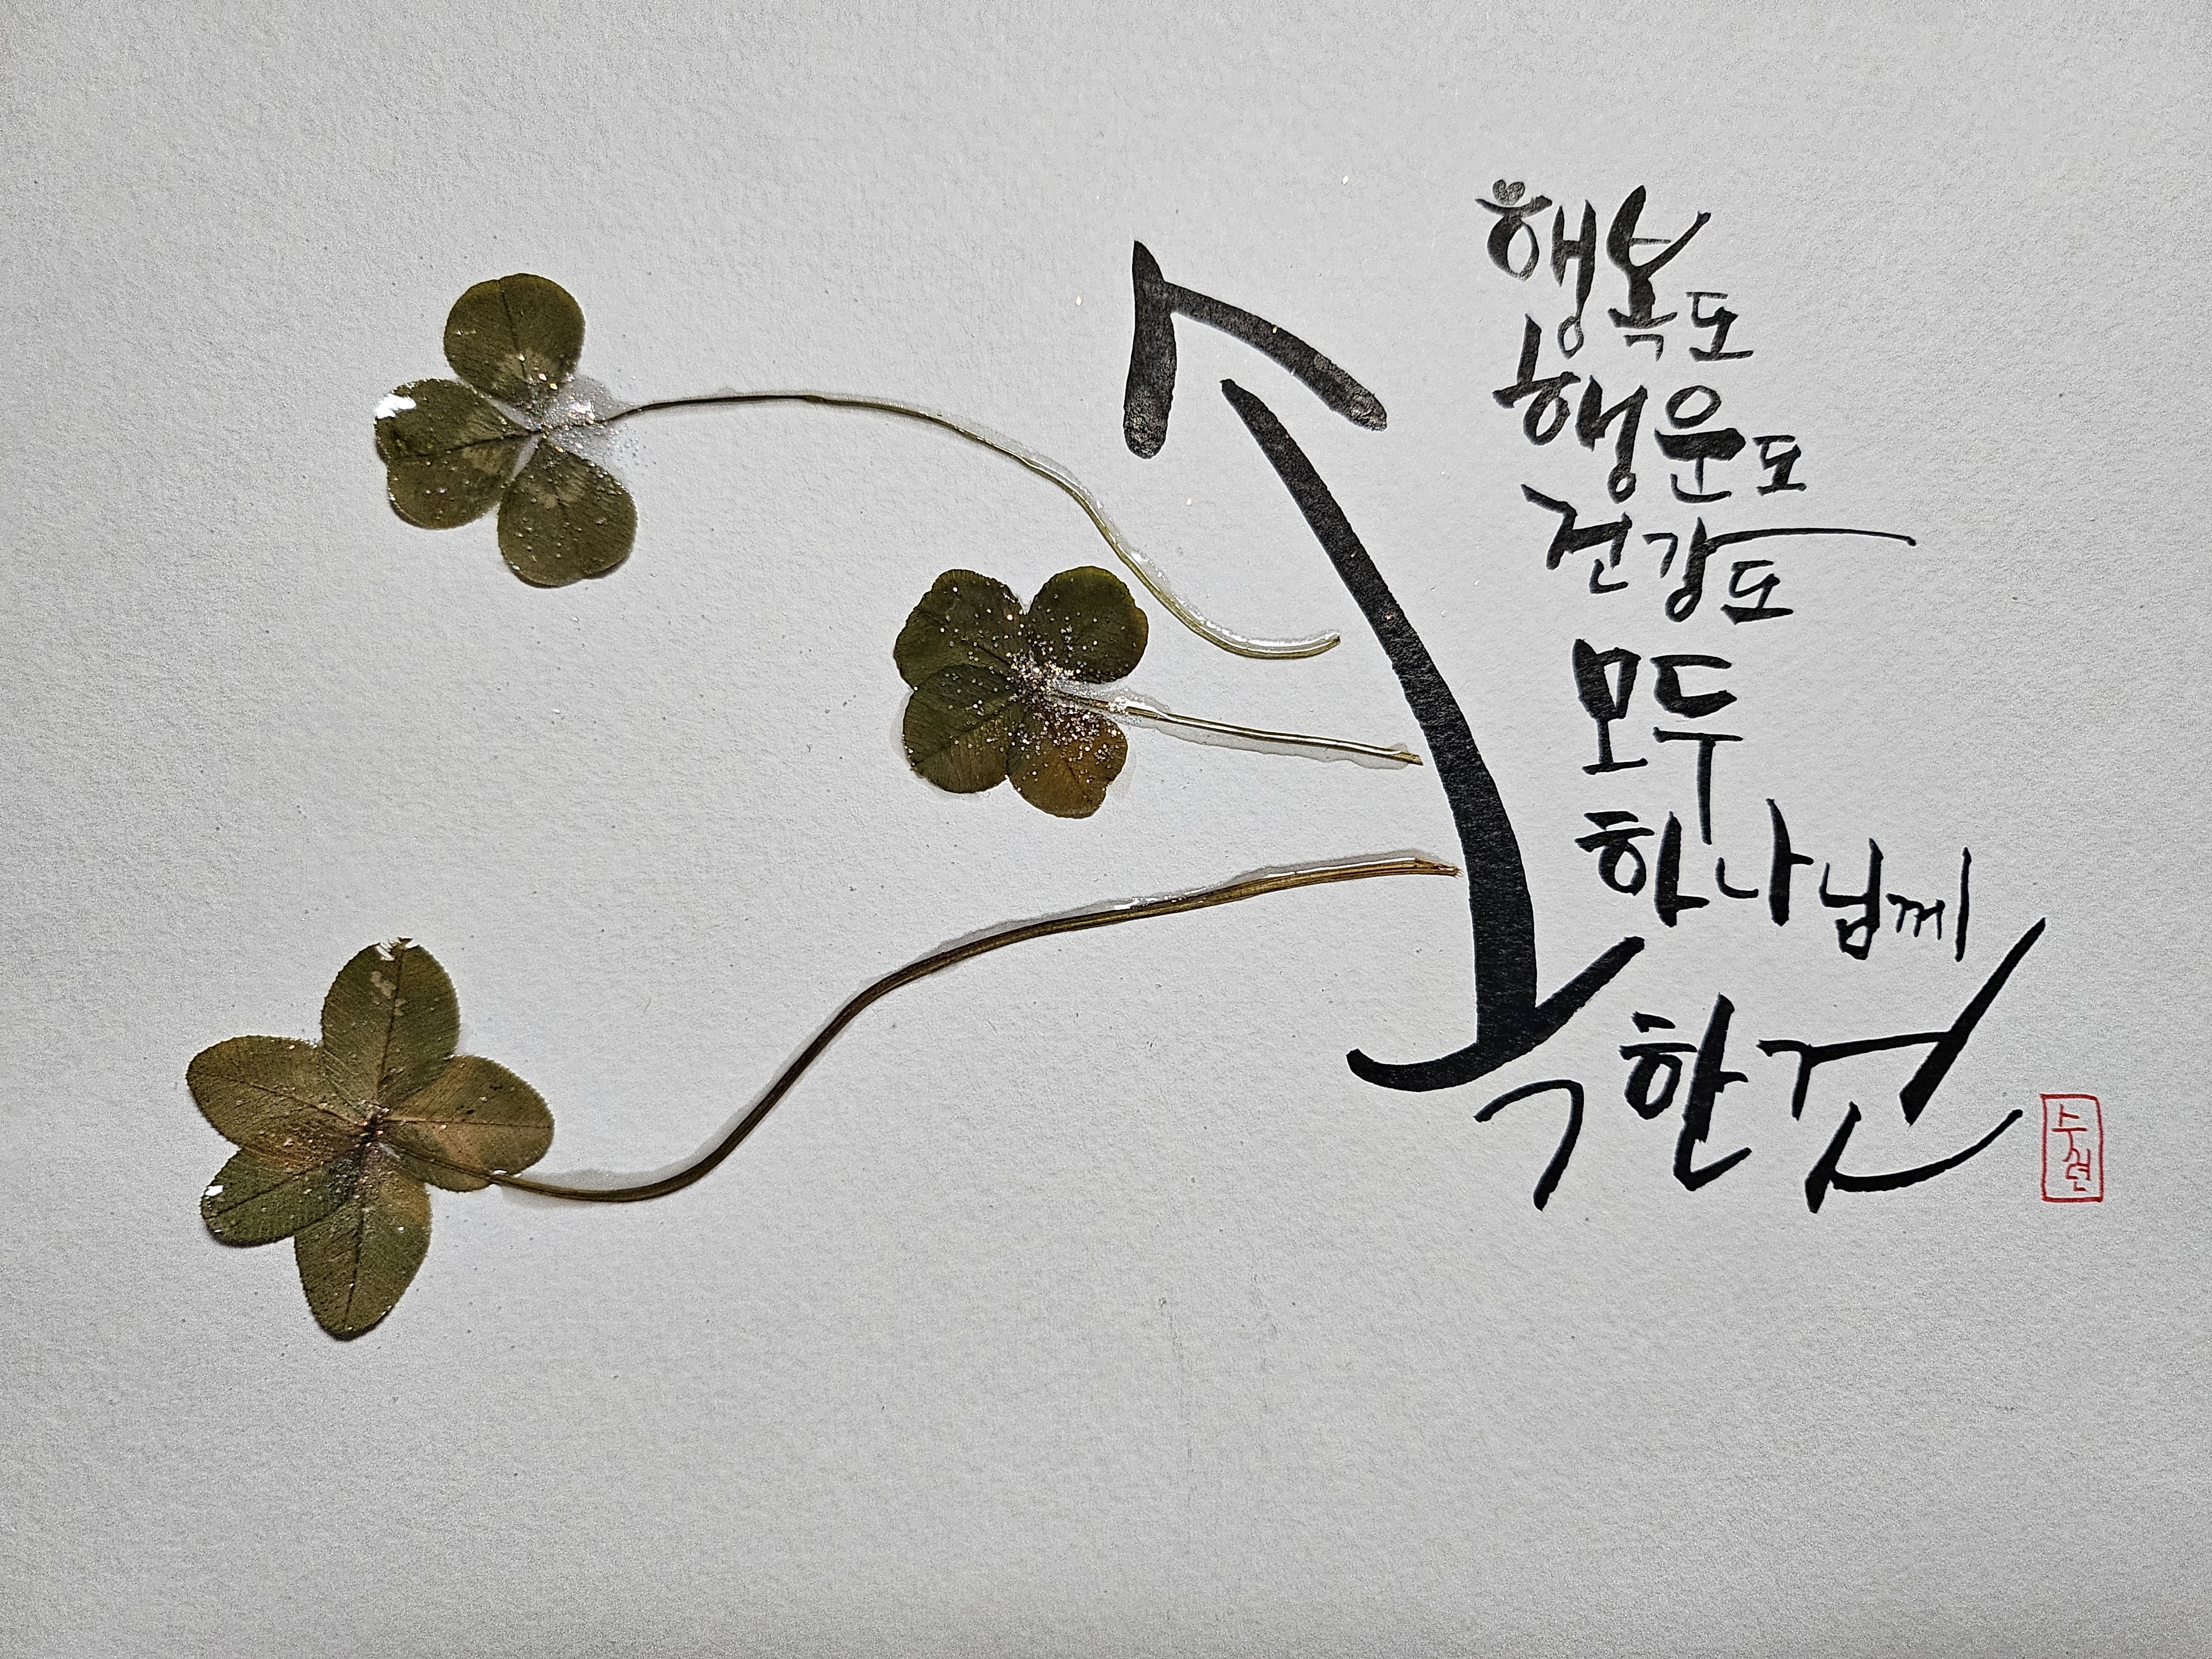 행복도
행운도
건강도
모두
하나님께
속한 것